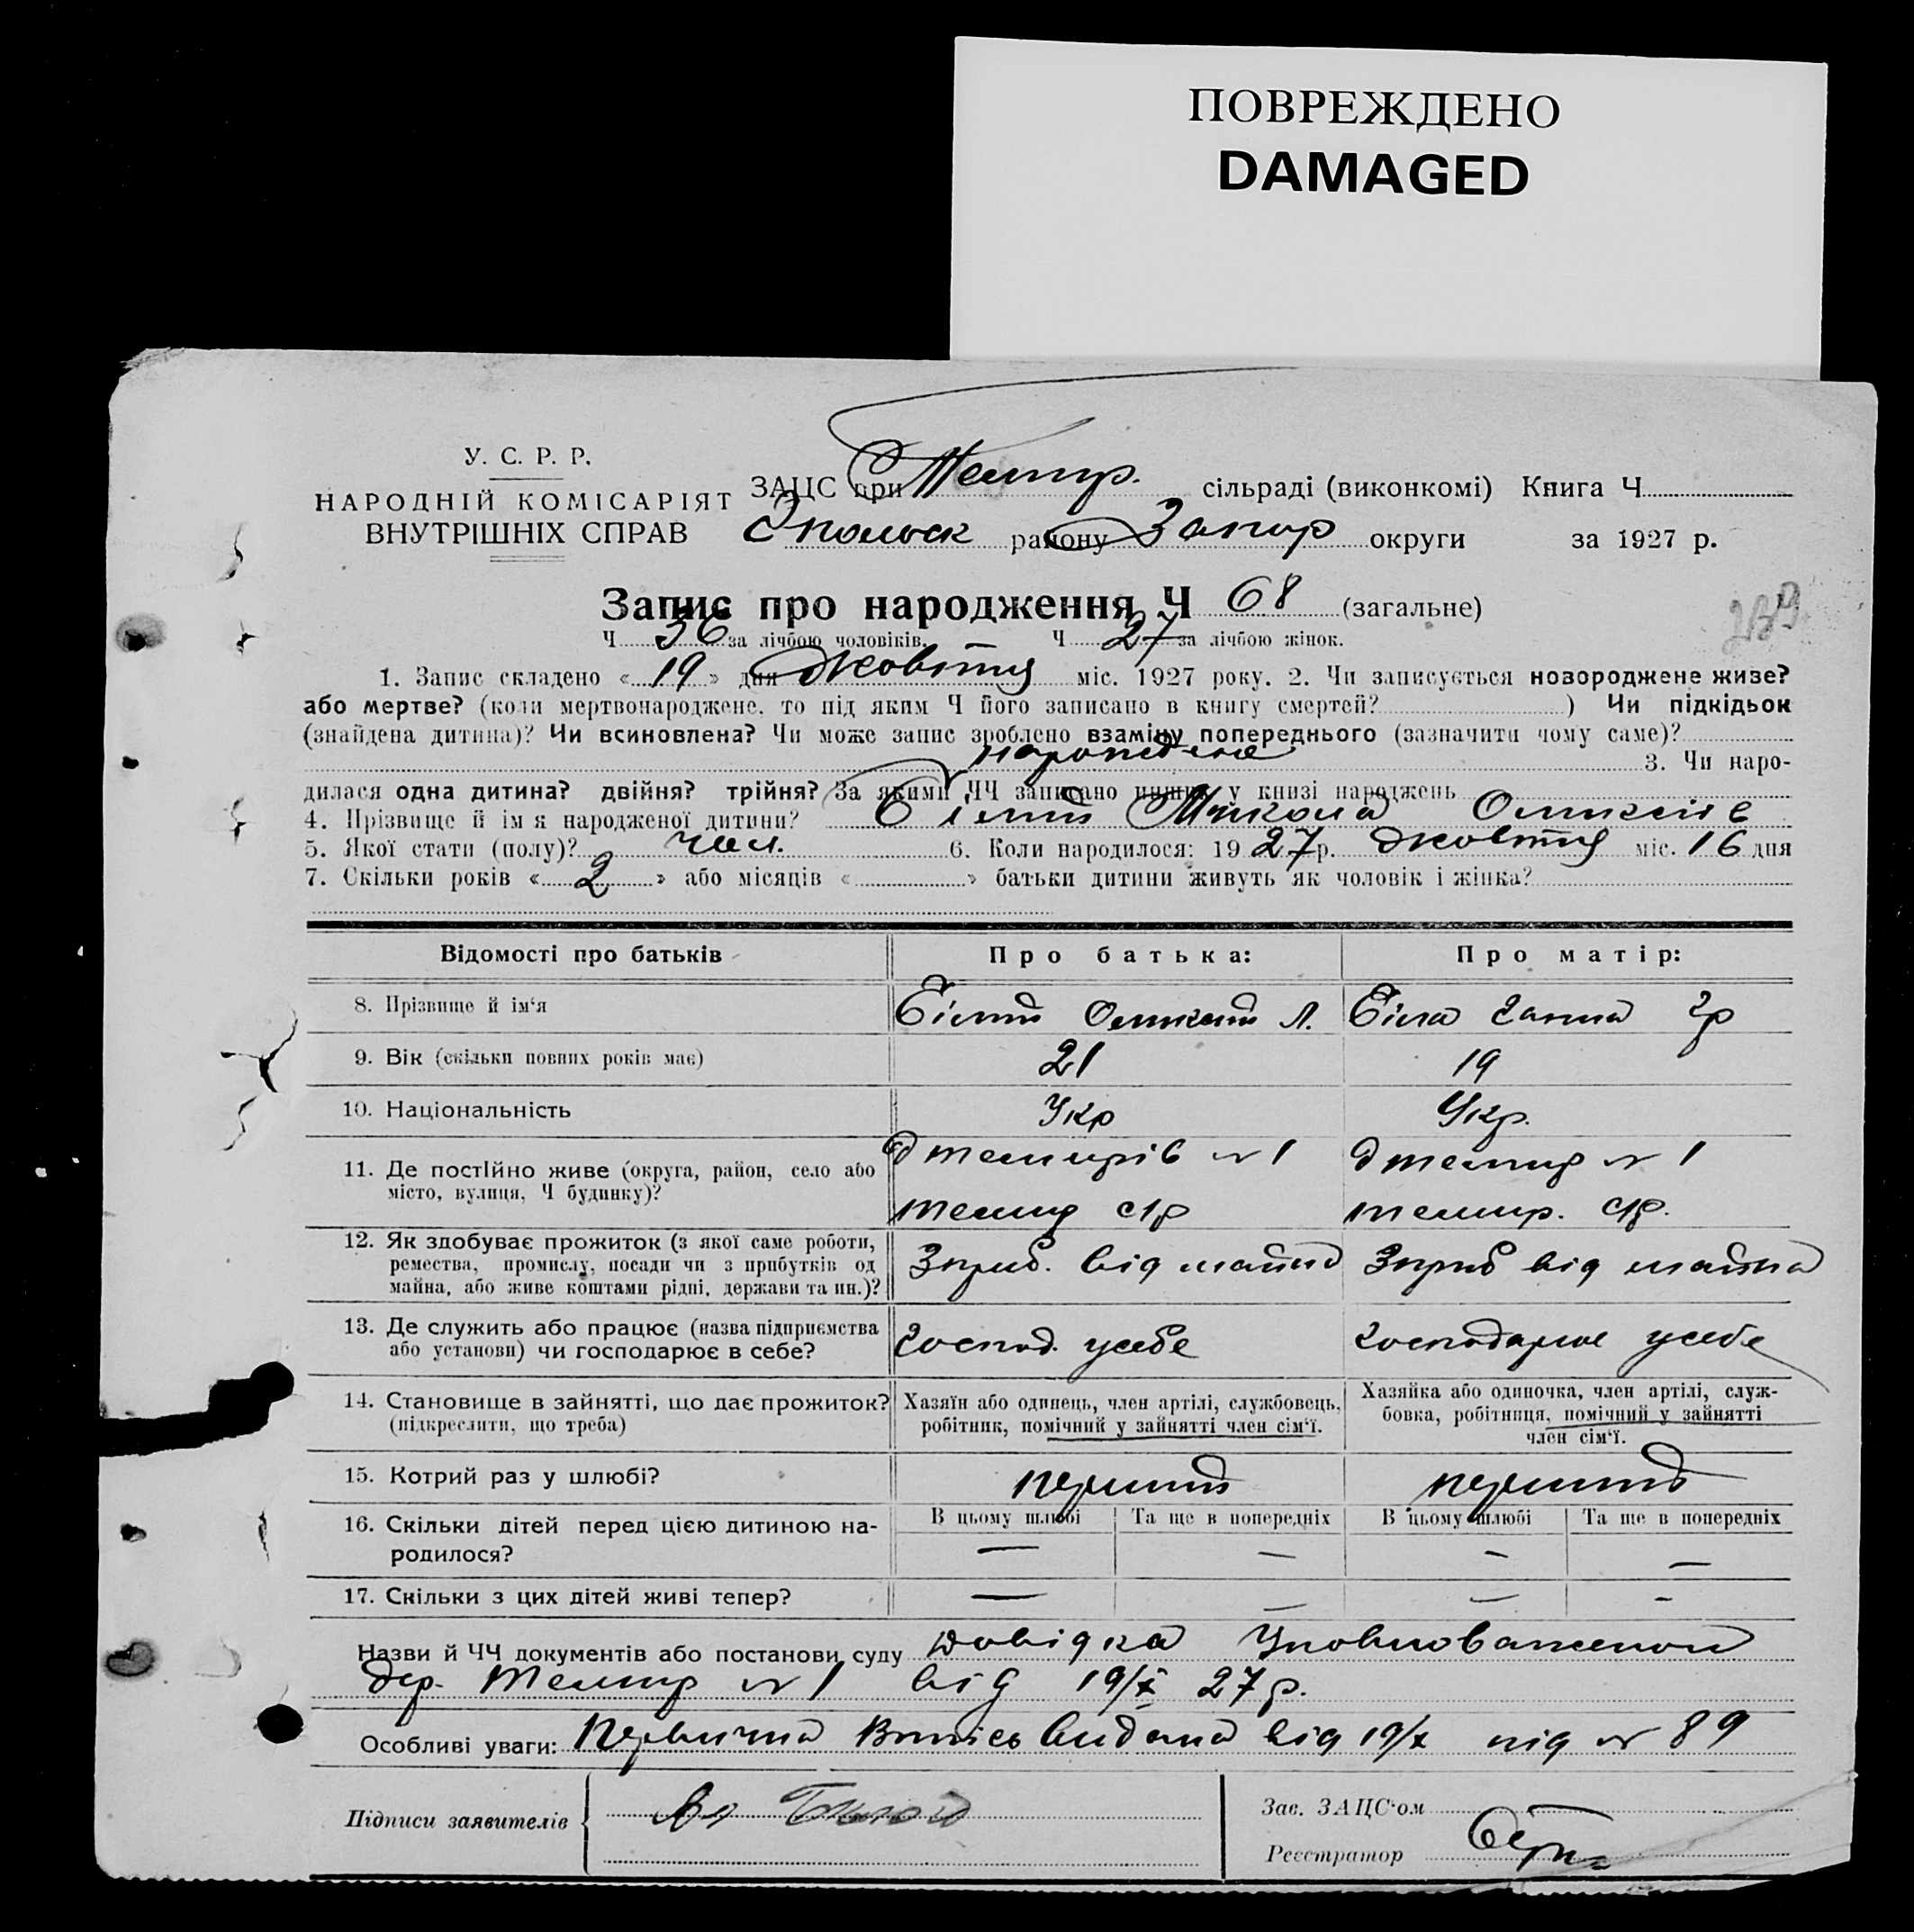 ПОВРЕЖДЕНО
DAMAGED
У. С. Р. Р.
НАРОДНІЙ КОМІСАРІЯТ
ВНУТРІШНІХ СПРАВ
ЗАЦС при Темир. сільраді (виконкомі) Книга Ч
району Запор округи за 1927 р.
Запис про народження Ч 68 (загальне)
239
Ч 36 за лічбою чоловіків. Ч 27 за лічбою жінок.
1. Запис складено « 19 » дня Жовтня міс. 1927 року. 2. Чи записується новороджене живе?
або мертве? (коли мертвонароджене, то під яким Ч його записано в книгу смертей? ) Чи підкідьок
(знайдена дитина)? Чи всиновлена? Чи може запис зроблено взаміну попереднього (зазначити чому саме)?
народжене 3. Чи наро-
дилася одна дитина? двійня? трійня? За якими ЧЧ записано инших у книзі народжень
4. Прізвище й ім я народженої дитини? Білий Микола
5. Якої стати (полу)? чол. 6. Коли народилося: 1927 р. жовтня міс. 16 дня
7. Скільки років « 2 » або місяців « » батьки дитини живуть як чоловік і жінка?
Відомості про батьків Про батька: Про матір:
8. Прізвище й ім'я Білий Л. Біла Ганна Гр
9. Вік (скільки повних років має) 21 19
10. Національність Укр Укр.
11. Де постійно живе (округа, район, село або місто, вулиця, Ч будинку)?
д Темирів № 1 д Темир № 1
Темир с/р Темир. с/р.
12. Як здобуває прожиток (з якої саме роботи, ремества, промислу, посади чи з прибутків од майна, або живе коштами рідні, держави та ин.)?
Зприб. від майна Зприб від майна
13. Де служить або працює (назва підприємства або установи) чи господарює в себе?
Господ. усебе Господарює усебе
14. Становище в зайнятті, що дає прожиток? (підкреслити, що треба)
Хазяїн або одинець, член артілі, службовець, робітник, помічний у зайнятті член сім'ї.
Хазяйка або одиночка, член артілі, служ-
бовка, робітниця, помічний у зайнятті
член сім'ї.
15. Котрий раз у шлюбі? перший перший
16. Скільки дітей перед цією дитиною на-
родилося?
В цьому шлюбі Та ще в попередніх В цьому шлюбі Та ще в попередніх
— — — —
17. Скільки з цих дітей живі тепер? — — — —
Назви й ЧЧ документів або постанови суду Довідка Уповноваженого
дер. Темир № 1 від 19/X 27 р.
Особливі уваги: Первична Випись видана від 19/X під № 89
Підписи заявителів
Зав. ЗАЦС'ом
Реєстратор